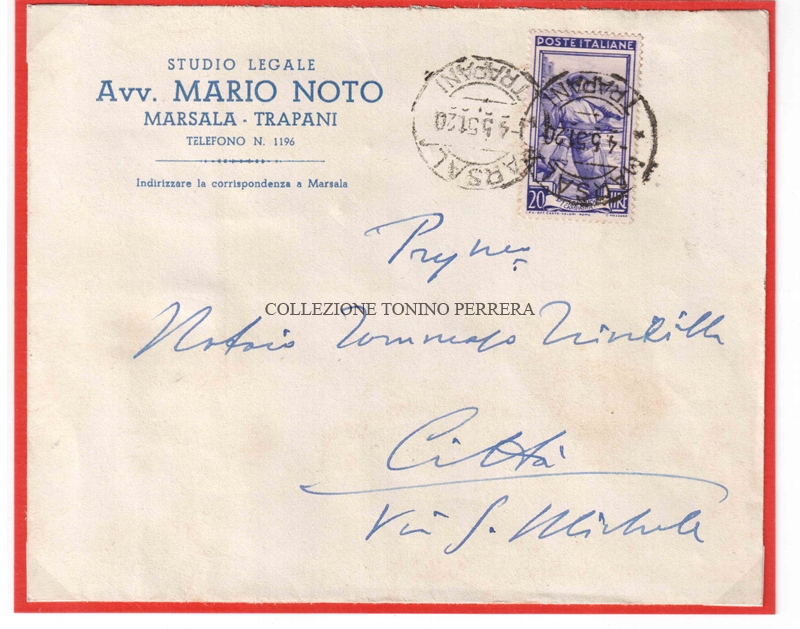 STUDIO LEGALE
Avv. MARIO NOTO
MARSALA - TRAPANI
TELEFONO N. 1196
Indirizzare la corrispondenza a Marsala
POSTE ITALIANE
20 LIRE
MARSALA
TRAPANI
-4.5.51.20
MARSALA
TRAPANI
-4.5.51.20
COLLEZIONE TONINO PERRERA
Notaio Tommaso
Città
Via S. Michele